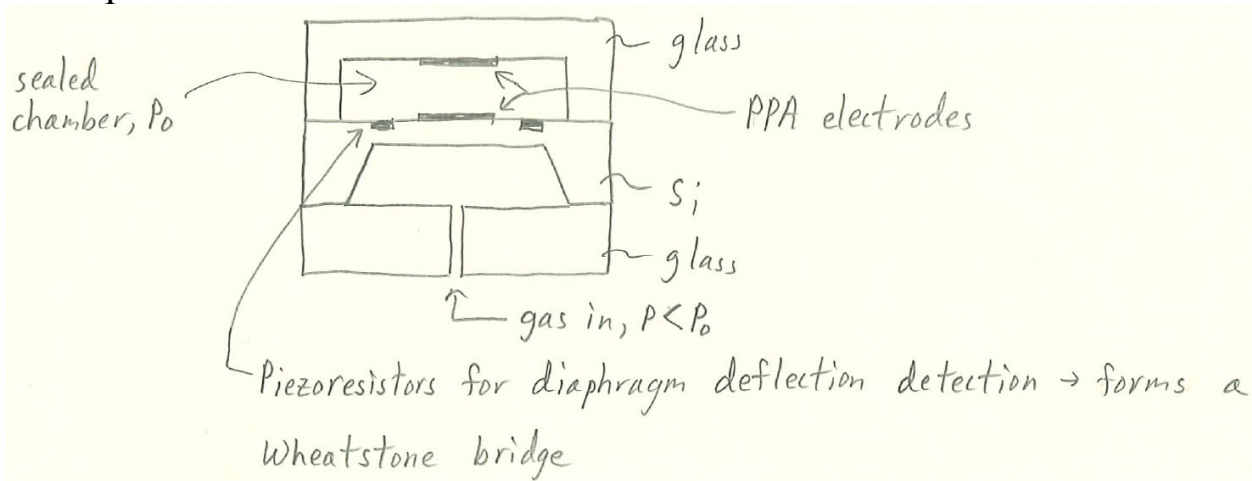 glass
sealed
chamber, P₀
PPA electrodes
Si
glass
gas in, P<P₀
Piezoresistors for diaphragm deflection detection → forms a
Wheatstone bridge